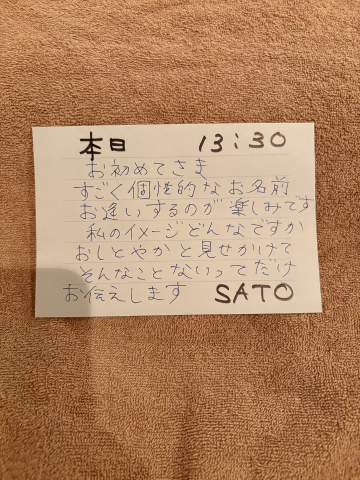 本日 13:30
お初めてさま
すごく個性的なお名前
お逢いするのが楽しみです
私のイメージどんなですか
おしとやかと見せかけて
そんなことないってだけ
お伝えします SATO